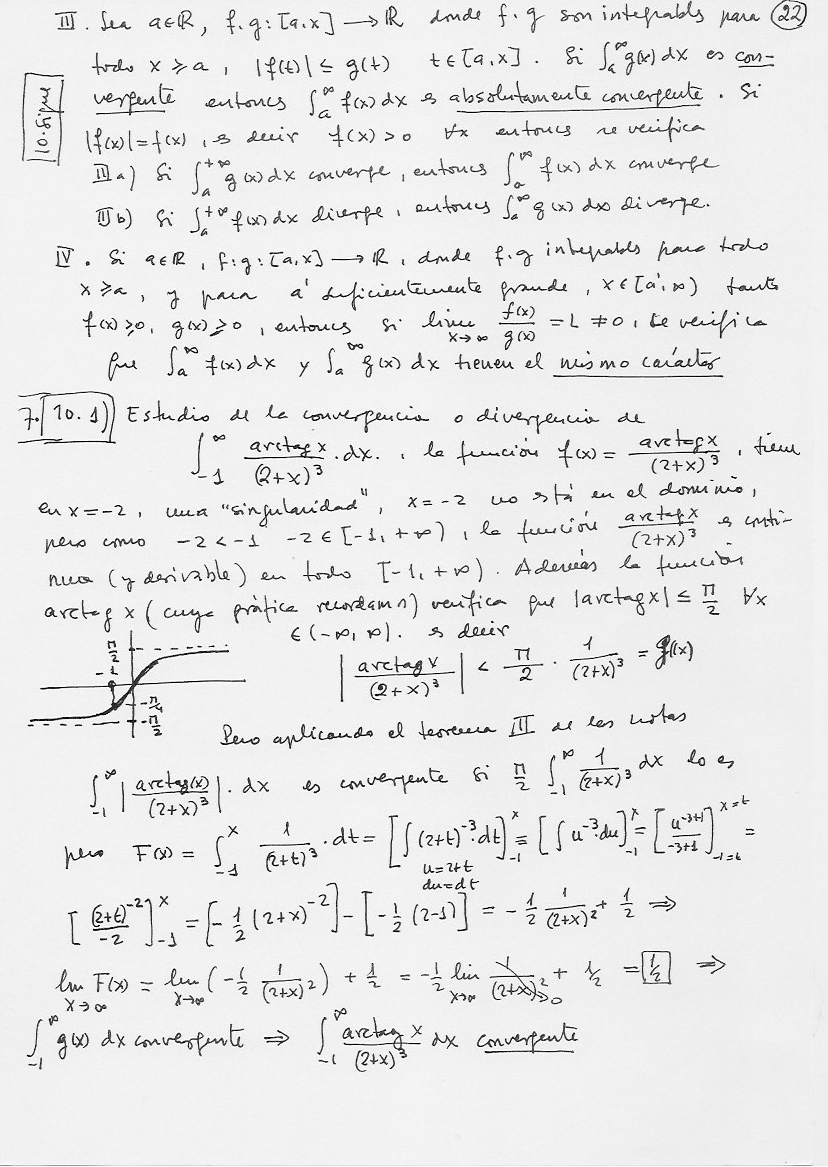 III. Sea a∈ℝ, f,g: [a,x] → ℝ donde f,g son integrables para (22)
todo x ≥ a, |f(t)| ≤ g(t) t∈[a,x]. Si ∫_a^∞ g(x) dx es con-
10. Sigue
vergente entonces ∫_a^∞ f(x) dx es absolutamente convergente. Si
|f(x)| = f(x), es decir f(x) > 0 ∀x entonces se verifica
III a) Si ∫_a^{+∞} g(x) dx converge, entonces ∫_a^∞ f(x) dx converge
III b) Si ∫_a^{+∞} f(x) dx diverge, entonces ∫_a^∞ g(x) dx diverge.
IV. Si a∈ℝ, f,g: [a,x] → ℝ, donde f,g integrables para todo
x ≥ a, y para a' suficientemente grande, x∈[a',∞) tanto
f(x) ≥ 0, g(x) ≥ 0, entonces si lim_{x→∞} f(x)/g(x) = L ≠ 0, se verifica
que ∫_a^∞ f(x) dx y ∫_a^∞ g(x) dx tienen el mismo carácter
7. 10.1) Estudio de la convergencia o divergencia de
∫_{-1}^∞ arctag x/(2+x)³ · dx. , la función f(x) = arctag x/(2+x)³, tiene
en x=-2, una "singularidad", x=-2 no está en el dominio,
pero como -2 < -1 -2 ∈ [-1,+∞), la función arctag x/(2+x)³ es conti-
nua (y derivable) en todo [-1,+∞). Además la función
arctag x (cuya gráfica recordamos) verifica que |arctag x| ≤ π/2 ∀x
∈(-∞,∞). es decir
π/2
-1
-π/4
-π/2
|arctag x/(2+x)³| < π/2 · 1/(2+x)³ = g(x)
Pero aplicando el teorema III de las notas
∫_{-1}^∞ |arctag(x)/(2+x)³| · dx es convergente si π/2 ∫_{-1}^∞ 1/(2+x)³ dx lo es
pero F(x) = ∫_{-1}^x 1/(2+t)³ · dt = [∫(2+t)^{-3} · dt]_{-1}^x = [∫u^{-3} · du]_{-1}^x = [u^{-3+1}/(-3+1)]_{-1=t}^{x=t} =
u=2+t
du=dt
[(2+t)^{-2}/-2]_{-1}^x = [-1/2 (2+x)^{-2}] - [-1/2 (2-1)] = -1/2 1/(2+x)² + 1/2 ⇒
lim_{x→∞} F(x) = lim_{x→∞} (-1/2 1/(2+x)²) + 1/2 = -1/2 lim_{x→∞} 1/(2+x)² → 0 + 1/2 = 1/2 ⇒
∫_{-1}^∞ g(x) dx convergente ⇒ ∫_{-1}^∞ arctag x/(2+x)³ dx convergente